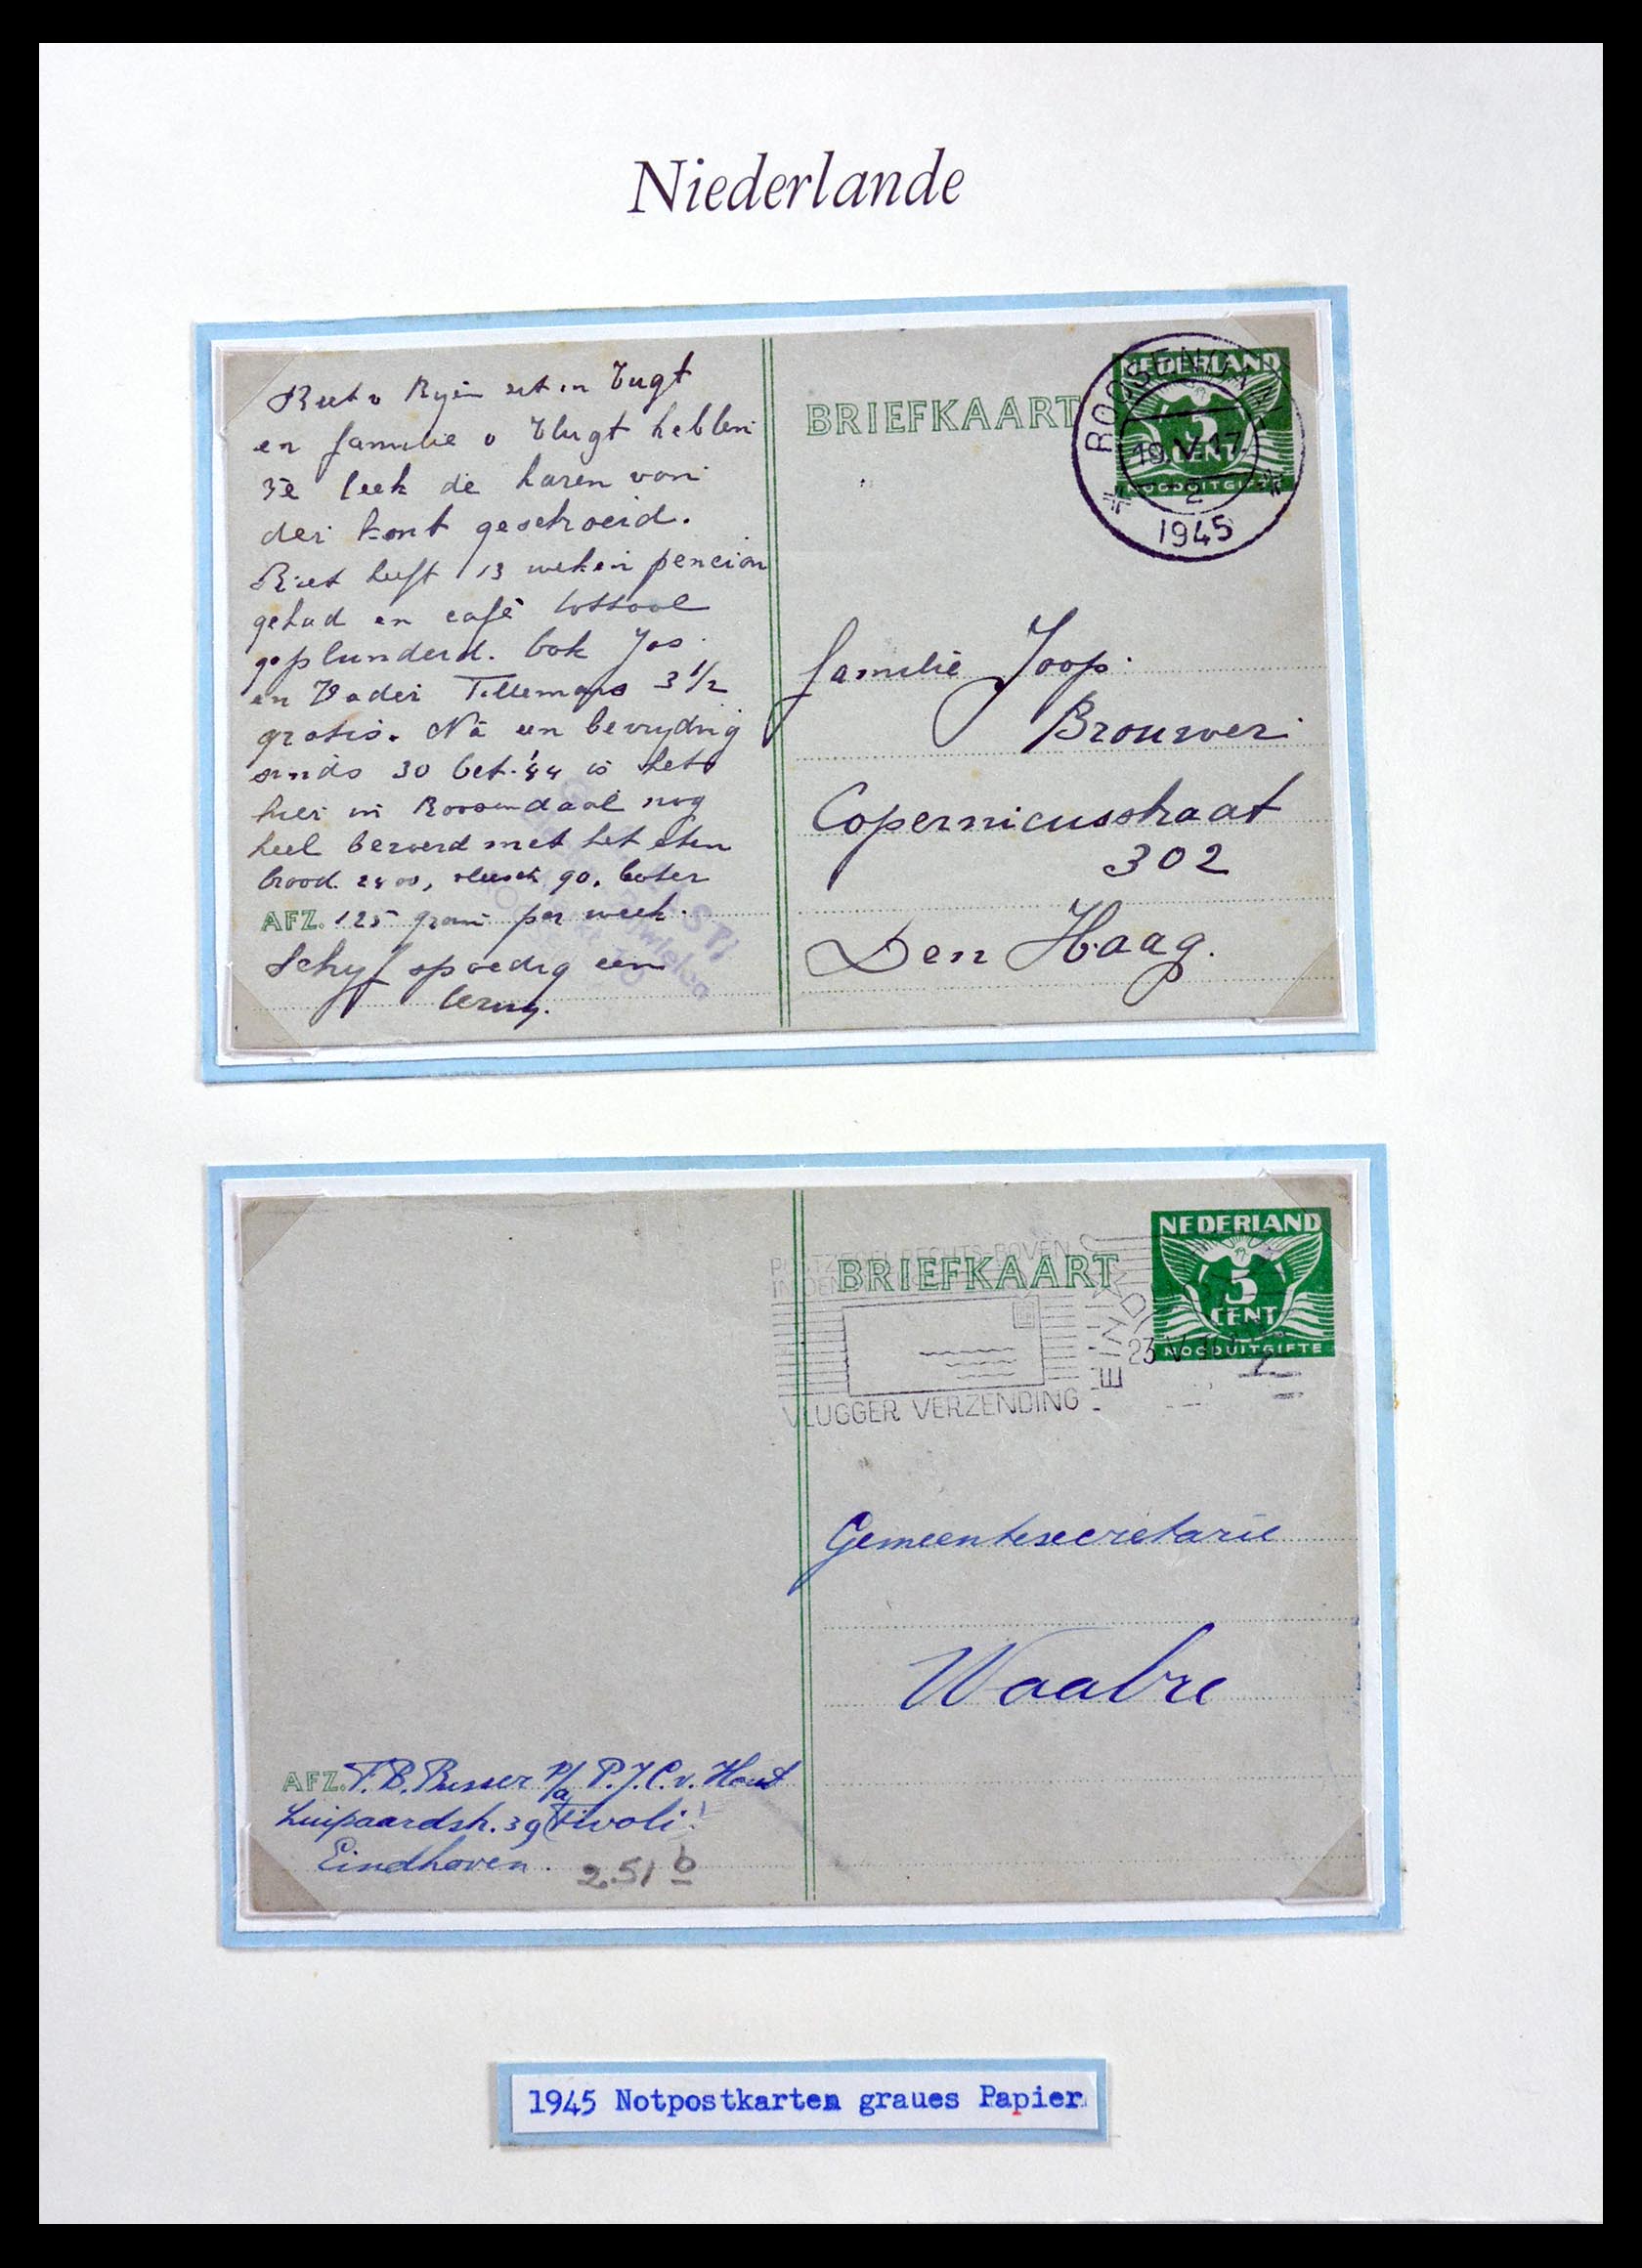 Niederlande
en familie v Vlugt hebben
3è leek de haren van
der kont geschroeid.
Riet heeft 13 weken pencion
gehad en café totaal
geplunderd. Ook Jos
en Vader Tillemans 3 1/2
gratis. Nà een bevrijding
sinds 30 Oct. '44 is het
hier in Roosendaal nog
heel beroerd met het eten
brood 2400, vleesch 90, boter
AFZ. 125 gram per week.
Schrijf spoedig een
terug.
BRIEFKAART
NEDERLAND
5
CENT
NOODUITGIFTE
ROOSENDAAL
19.V.17
2
1945
familie Joop
Brouwer
Copernicusstraat
302
Den Haag.
POSTZEGEL RECHTS BOVEN
IN DEN
VLUGGER VERZENDING
BRIEFKAART
EINDHOVEN
23 V
NEDERLAND
5
CENT
NOODUITGIFTE
Gemeentesecretarie
Waalre
AFZ. F. B. Busser p/a P.J.C. v. Hout
Luipaardstr. 39 (Tivoli)
Eindhoven.
251 b
1945 Notpostkarten graues Papier